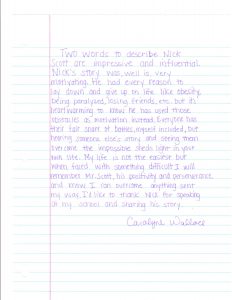 Two words to describe Nick
Scott are impressive and influential.
Nick's story was, well is, very
motivating. He had every reason to
lay down and give up on life. like obesity,
being paralyzed, losing friends, etc. but its
heartwarming to know he has used those
obstacles as motivation instead. Everyone has
their fair share of battles, myself included, but
hearing someone else's story and seeing them
overcome the impossible sheds light in your
own life. My life is not the easiest but
when faced with something difficult I will
remember Mr. Scott, his positivity and perserverance
and know I can overcome anything sent
my way. I'd like to thank Nick for speaking
at my school and sharing his story.
Caralyne Wallace